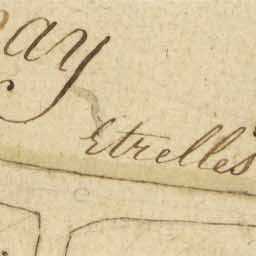 ay
Etrelles